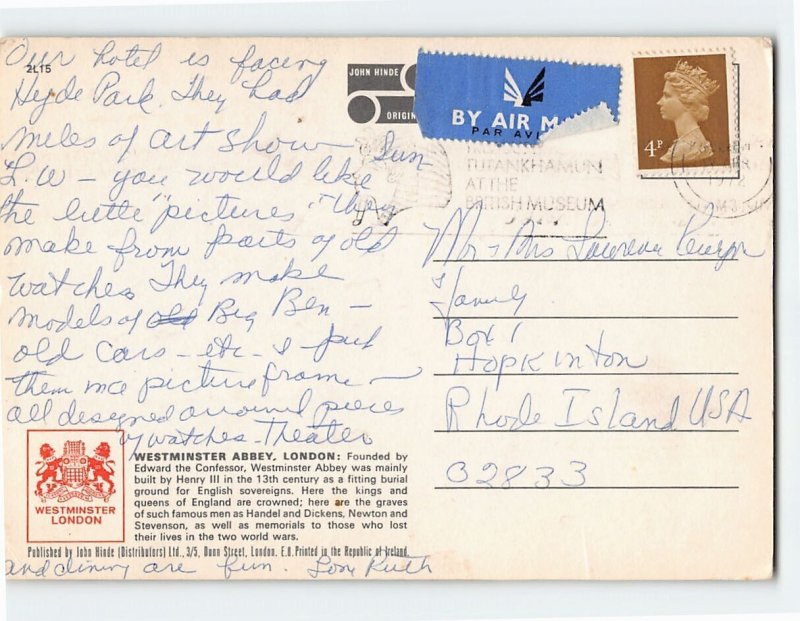 2L15
Our hotel is facing
Hyde Park. They had
miles of art show Sun
L.W - you would like
the little "pictures" they
make from parts of old
watches. They make
models of old Big Ben -
old cars - etc - & put
them in a picture frame -
all designed around pieces
of watches. Theater
and dining are fun. Love Ruth
JOHN HINDE
ORIGIN
BY AIR MA
PAR AVI
4P
TUTANKHAMUN
AT THE
BRITISH MUSEUM
1972
Mr & Mrs Lawrence
& Family
Box 1
Hopkinton
Rhode Island USA
02833
WESTMINSTER
LONDON
WESTMINSTER ABBEY, LONDON: Founded by
Edward the Confessor, Westminster Abbey was mainly
built by Henry III in the 13th century as a fitting burial
ground for English sovereigns. Here the kings and
queens of England are crowned; here are the graves
of such famous men as Handel and Dickens, Newton and
Stevenson, as well as memorials to those who lost
their lives in the two world wars.
Published by John Hinde (Distributors) Ltd., 3/5, Dunn Street, London. E.8. Printed in the Republic of Ireland.